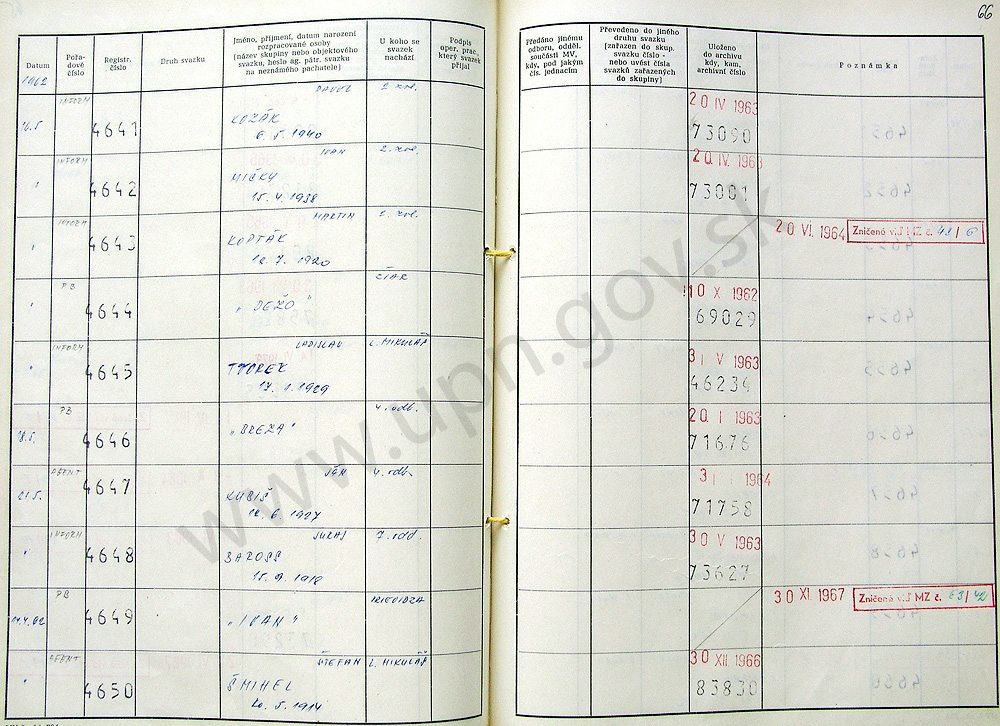 66
Datum
Pořa-
dové
číslo
Registr.
číslo
Druh svazku
Jméno, příjmení, datum narození
rozpracované osoby
(název skupiny nebo objektového
svazku, heslo ag. pátr. svazku
na neznámého pachatele)
U koho se
svazek
nachází
Podpis
oper. prac.,
který svazek
přijal
Předáno jinému
odboru, odděl.
součásti MV,
kdy, pod jakým
čís. jednacím
Převedeno do jiného
druhu svazku
(zařazen do skup.
svazku číslo -
nebo uvést čísla
svazků zařazených
do skupiny)
Uloženo
do archivu
kdy, kam,
archivní číslo
Poznámka
1962
INFORM PAVOL
16.5 4641 KOZÁK
6. 5. 1940
20 IV 1963
73090
INFORM IVAN
" 4642 MIČKY
15. 4. 1938
20. IV. 1963
73001
INFORM MARTIN
" 4643 KOPTÁK
12. 7. 1920
20 VI. 1964 Zničené viď MZ č.
PB
" 4644 "DEŽO"
10 X 1962
69029
INFORM LADISLAV L. MIKULÁŠ
" 4645
17. 1. 1929
31 V 1963
46234
PB 4. odb.
18.5. 4646 "BREZA"
20. I 1963
71676
AGENT JÁN 4. odb.
21.5. 4647 KUBIŠ
12. 6. 1927
3 I 1964
71758
INFORM JURAJ 7. odd.
" 4648 BAROSS
30 V 1963
73627
PB PRIEVIDZA
4649 "IVAN"
30 XI. 1967 Zničené viď MZ č. 63/42
AGENT ŠTEFAN L. MIKULÁŠ
" 4650 ŠMIHEL
20. 5. 1914
30 XII 1966
83830
www.upn.gov.sk